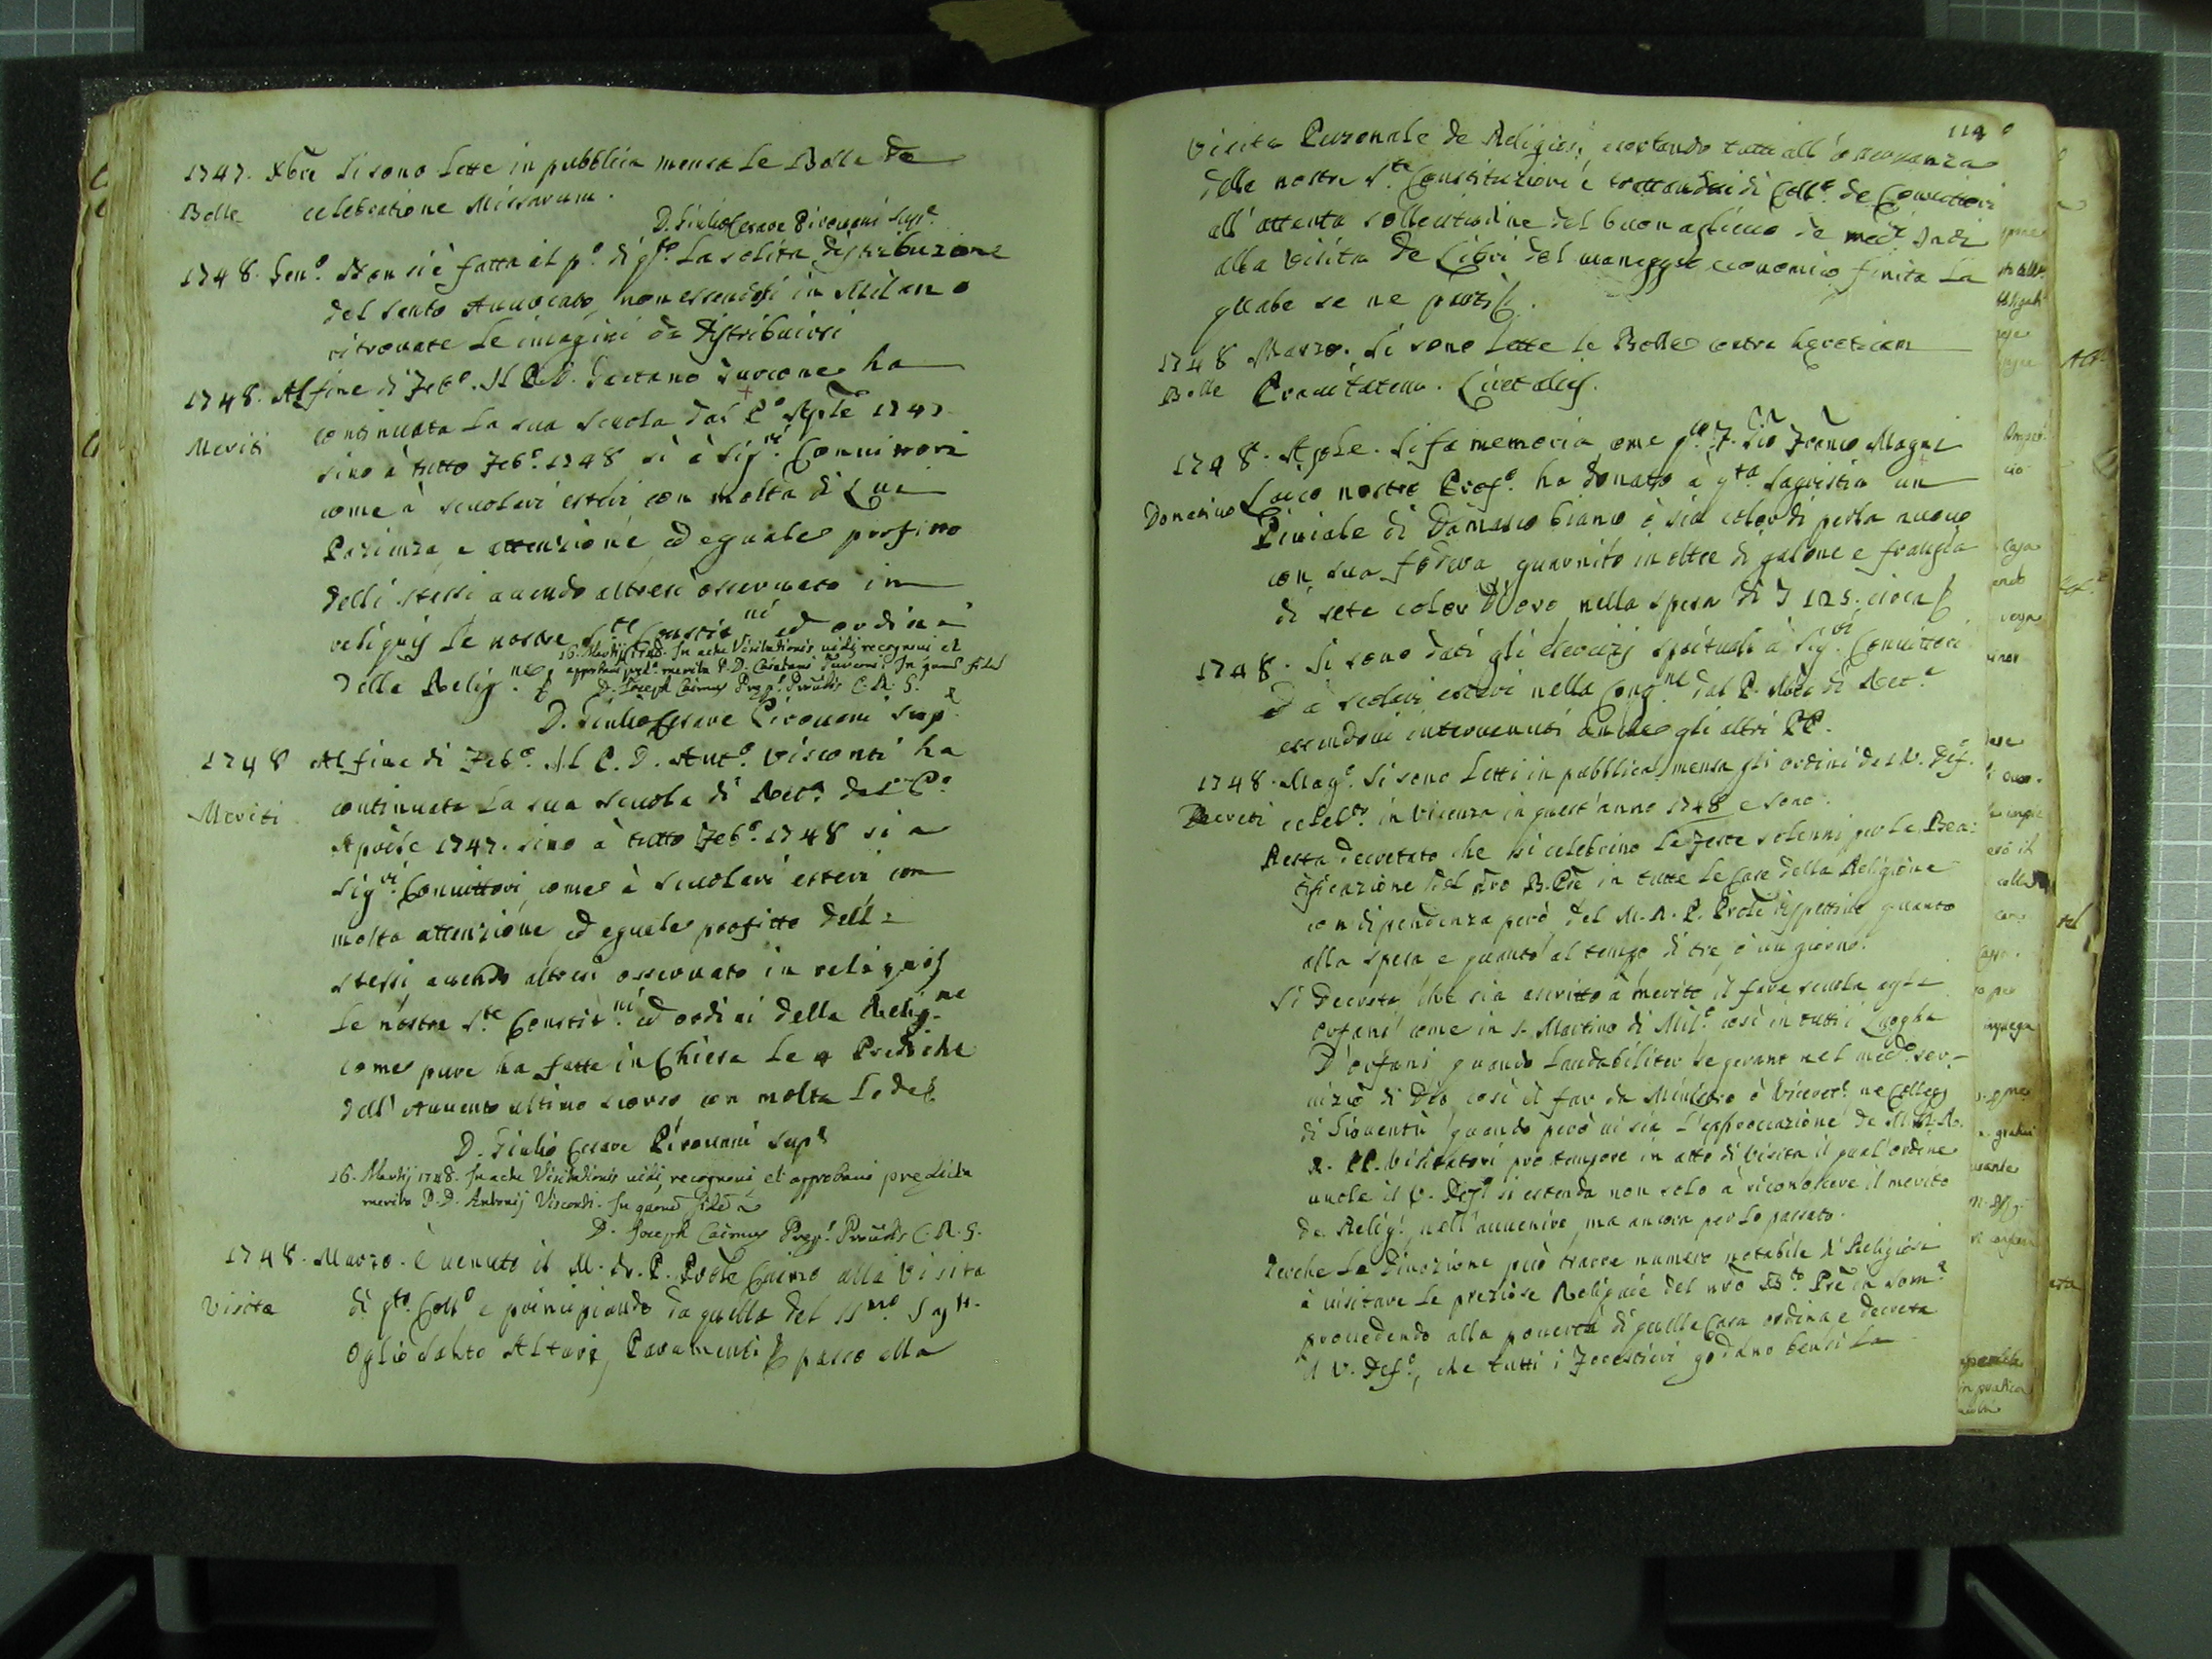 1747. Xbre Si sono lette in pubblica mensa le Bolle De
Bolle celebratione Missarum.
D. Giulio Cesare Pirovani Supe.
1748. Gen.o Non si è fatta il p.o di q.to la solita distribuzione
del Santo Auuocato, non essendosi in Milano
ritrouate le imagini da distribuirsi
1748. Al fine di Feb.o Il P. D. Gaetano Turcone ha
continuata la sua scuola dal P.o Aple 1747
Meriti
sino à tutto Feb.o 1748 sì à Sig.ri Conuittori
come à scuolari esteri con molta di Lui
Pazienza e attenzione ed eguale profitto
delli stessi auendo altresi osseruato in
reliquis le nostre S.te Constit.ni ed ordini
della Relig.ne
16. Martij 1748. In actu Visitationis uidi, recognoui et
approbaui pred.a merita P. D. Caietani Turconi. In quorũ fidem
D. Joseph Caimus Prep.s Prouẽlis C. R. S.
D. Giulio Cesare Pirouani Sup.e
1748 Al fine di Feb.o Il P. D. Ant.o Visconti ha
continuata la sua scuola di Ret.a dal P.o
Meriti
Aprile 1747. sino à tutto Feb.o 1748 si a
Sig.ri Conuittori, come à scuolari esteri con
molta attenzione, ed eguale profitto delli
stessi, auendo altresi osseruato in reliquis
le nostre S.te Constit.ni ed ordini della Relig.ne
come pure ha fatte in Chiesa le 4 Prediche
dell' Auuento ultimo scorso con molta lode
D. Giulio Cesare Pirouani Sup.e
16. Martij 1748. In actu Visitationis uidi, recognoui et approbaui predicta
merita P. D. Antonij Visconti. In quorũ fidẽ
D. Joseph Caimus Prep.s Prouẽlis C. R. S.
1748. Marzo. È uenuto il M. R. P. Prõle Caimo alla Visita
Visita
di q.to Coll.o e principiando da quella del SS.mo Sag.to
Oglio Santo Altari, Paramenti passò alla
114
Visita Personale de Religiosi esortando tutti all' osseruanza
delle nostre S.te Constituzioni e trattandosi di Coll.o de Conuittori
all' attenta sollecitudine del buon alieuo de med.i Indi
alla Visita de Libri del maneggio economico finita la
quale se ne partì.
1748 Marzo. Si sono lette le Bolle contra hereticam
Bolle Prauitatem.
1748. Aple. Si fa memoria come q.to F. Gio Franco Magni
Donatiuo Laico nostro Prof.o ha donato à q.ta Sagristia un
Piuiale di Damasco bianco ò sia color di perla nuouo
con sua fodera, guarnito inoltre di galone e frangia
di seta color d'oro nella spesa di 125. circa
1748. Si sono dati gli esercizj spirituali à Sig.ri Conuittori
ed a scolari esteri nella Cong.ne dal P. di Ret.a
essendoui interuenuti anche gli altri PP.
1748. Mag.o Si sono letti in pubblica mensa gli ordini del V. Def.o
Decreti celeb.to in Vicenza in quest' anno 1748 e sono.
Resta decretato che si celebrino le Feste solenni per la Bea:
tificazione del nro B. Pre in tutte le Case della Religione
con dipendenza però del M. R. P. Prõle rispettiuo quanto
alla spesa e quanto al tempo di tre, ò un giorno.
Si decreta che sia ascritto à merito il fare scuola agli
Orfani come in S. Martino di Mil.o così in tutti i Luoghi
d'orfani quando laudabiliter se gerant nel med.o ser-
uizio di Dio così il far da Ministro ò Viceret.e ne Collegj
di Giouentù quando però ui sia l'approuazione de M.
R. PP. Visitatori pro tempore in atto di Visita il qual' ordine
uuole il V. Def.o si estenda non solo à riconoscere il merito
de Relig.i nell' auuenire, ma ancora per lo passato.
Perche la diuozione può trarre numero notabile di Religiosi
à uisitare le preziose Reliquie del nro B.to Pre in Som.a
prouedendo alla pouertà di quella Casa ordina e decreta
il V. Def.o, che tutti i Forestieri godano bensi la